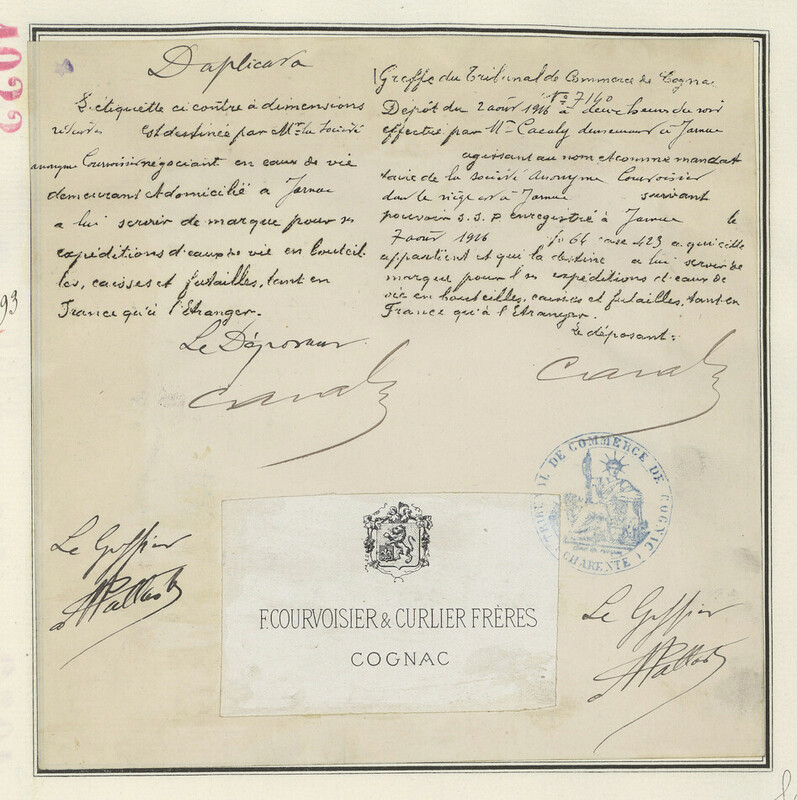 Duplicata
L'étiquette ci contre à dimensions
réduites est destinée par Mr la Société
anonyme Courvoisier négociant en eaux de vie
demeurant et domicilié à Jarnac
a lui servir de marque pour ses
expéditions d'eaux de vie en bouteil-
les, caisses et futailles, tant en
France qu'à l'Etranger.
Le Déposant
Greffe du Tribunal de Commerce de Cognac
No 7140
Dépôt du 2 août 1916 à deux heures du soir
effectué par Mr demeurant à Jarnac
agissant au nom et comme mandat
taire de la Société Anonyme Courvoisier
dont le siège est à Jarnac suivant
pouvoir s.s.p enregistré à Jarnac le
7 août 1916 fo 64 case 423 a qui elle
appartient et qui la destine a lui servir de
marque pour ses expéditions d'eaux de
vie en bouteilles, caisses et futailles, tant en
France qu'à l'Etranger.
Le déposant:
TRIBUNAL DE COMMERCE DE COGNAC
CHARENTE
Le Greffier
F. COURVOISIER & CURLIER FRÈRES
COGNAC
Le Greffier
93